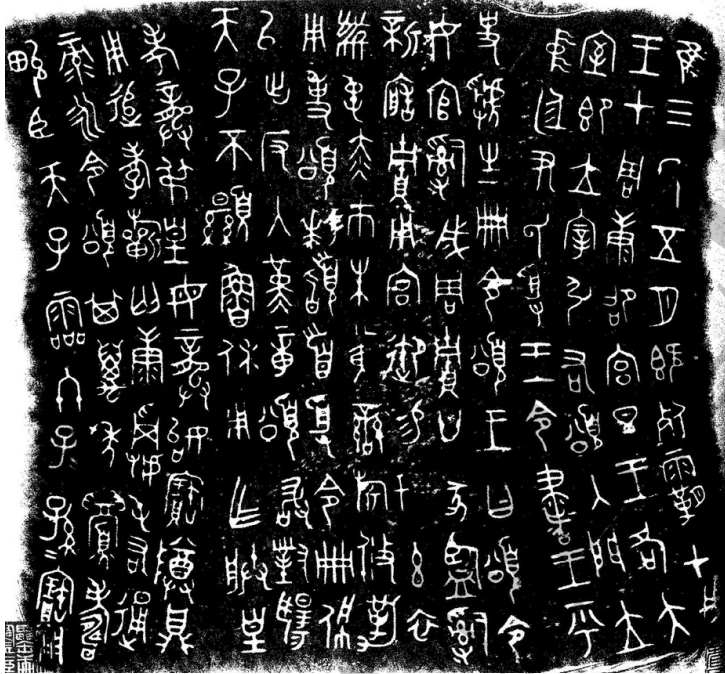 隹三年五月既死霸甲戌
王才周康卲宮旦王各大
室即立宰引右頌入門立
中廷尹氏受王令書王乎
史虢生冊令頌王曰頌令
女官𤔲成周貯廿家監𤔲
新寤貯用宮御易女玄衣
黹屯赤巿朱黃䜌旂攸勒
用事頌拜𩒨首受令冊佩
以出反入堇章頌敢對揚
天子不顯魯休用乍朕皇
考龏弔皇母龏姒寶尊簋
用追孝祈匄康𩛥屯右通
彔永令頌其萬年眉壽
畯臣天子霝冬子孫=寶用